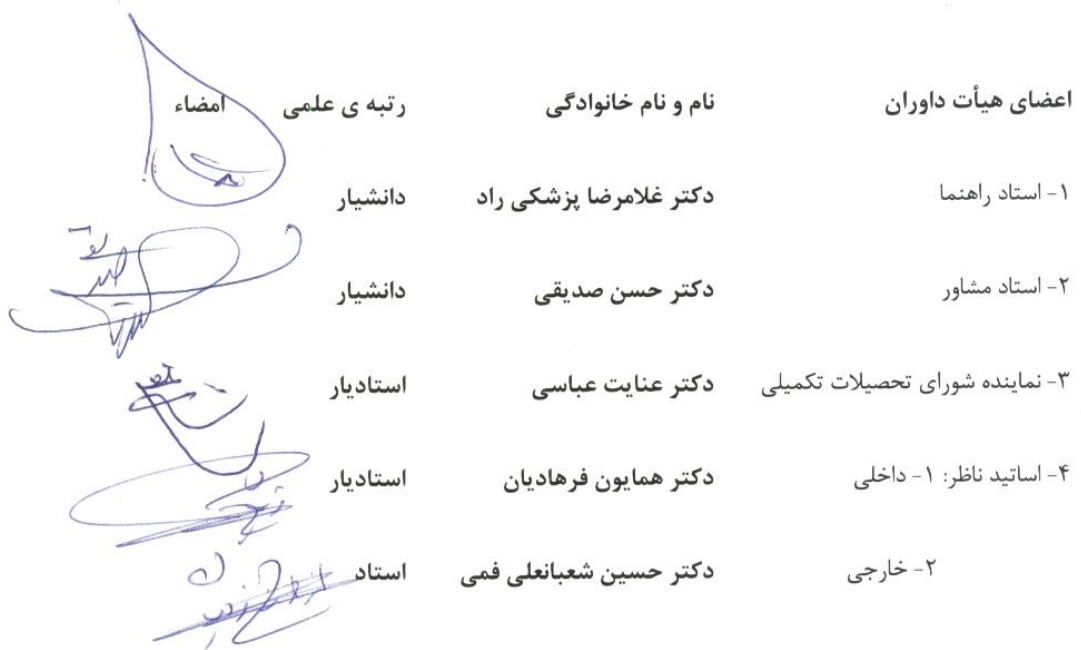 اعضای هیأت داوران نام و نام خانوادگی رتبه ی علمی امضاء
۱- استاد راهنما دکتر غلامرضا پزشکی راد دانشیار
۲- استاد مشاور دکتر حسن صدیقی دانشیار
۳- نماینده شورای تحصیلات تکمیلی دکتر عنایت عباسی استادیار
۴- اساتید ناظر: ۱- داخلی دکتر همایون فرهادیان استادیار
۲- خارجی دکتر حسین شعبانعلی فمی استاد